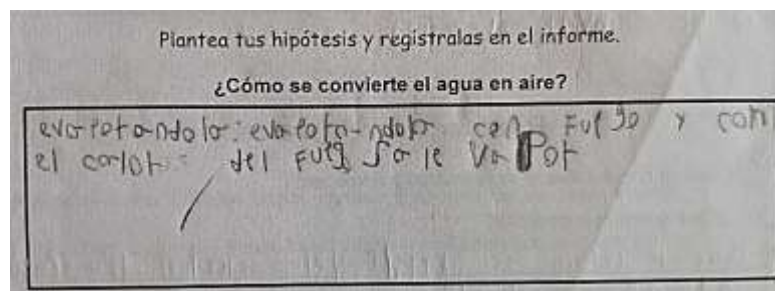 Plantea tus hipótesis y regístralas en el informe.
¿Cómo se convierte el agua en aire?
evaporandola: evapora-ndola con Fuego y con
el calor del Fueg Sale VaPor